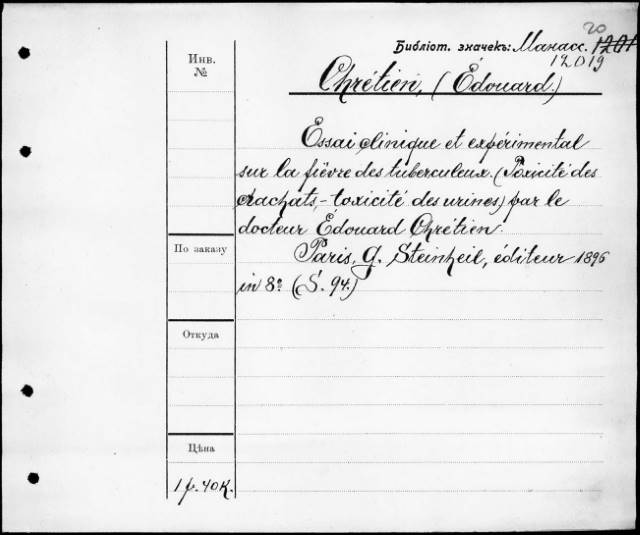 20
Библіот. значекъ: Манасс. 1201
12019
Инв.
№
Chrétien, (Édouard.)
Essai clinique et expérimental
sur la fièvre des tuberculeux. (Toxicité des
crachats, - toxicité des urines) par le
docteur Édouard Chrétien.
По заказу
Paris, G. Steinheil, éditeur 1896
in 8º (S. 94.)
Откуда
Цѣна
1 р. 40 к.